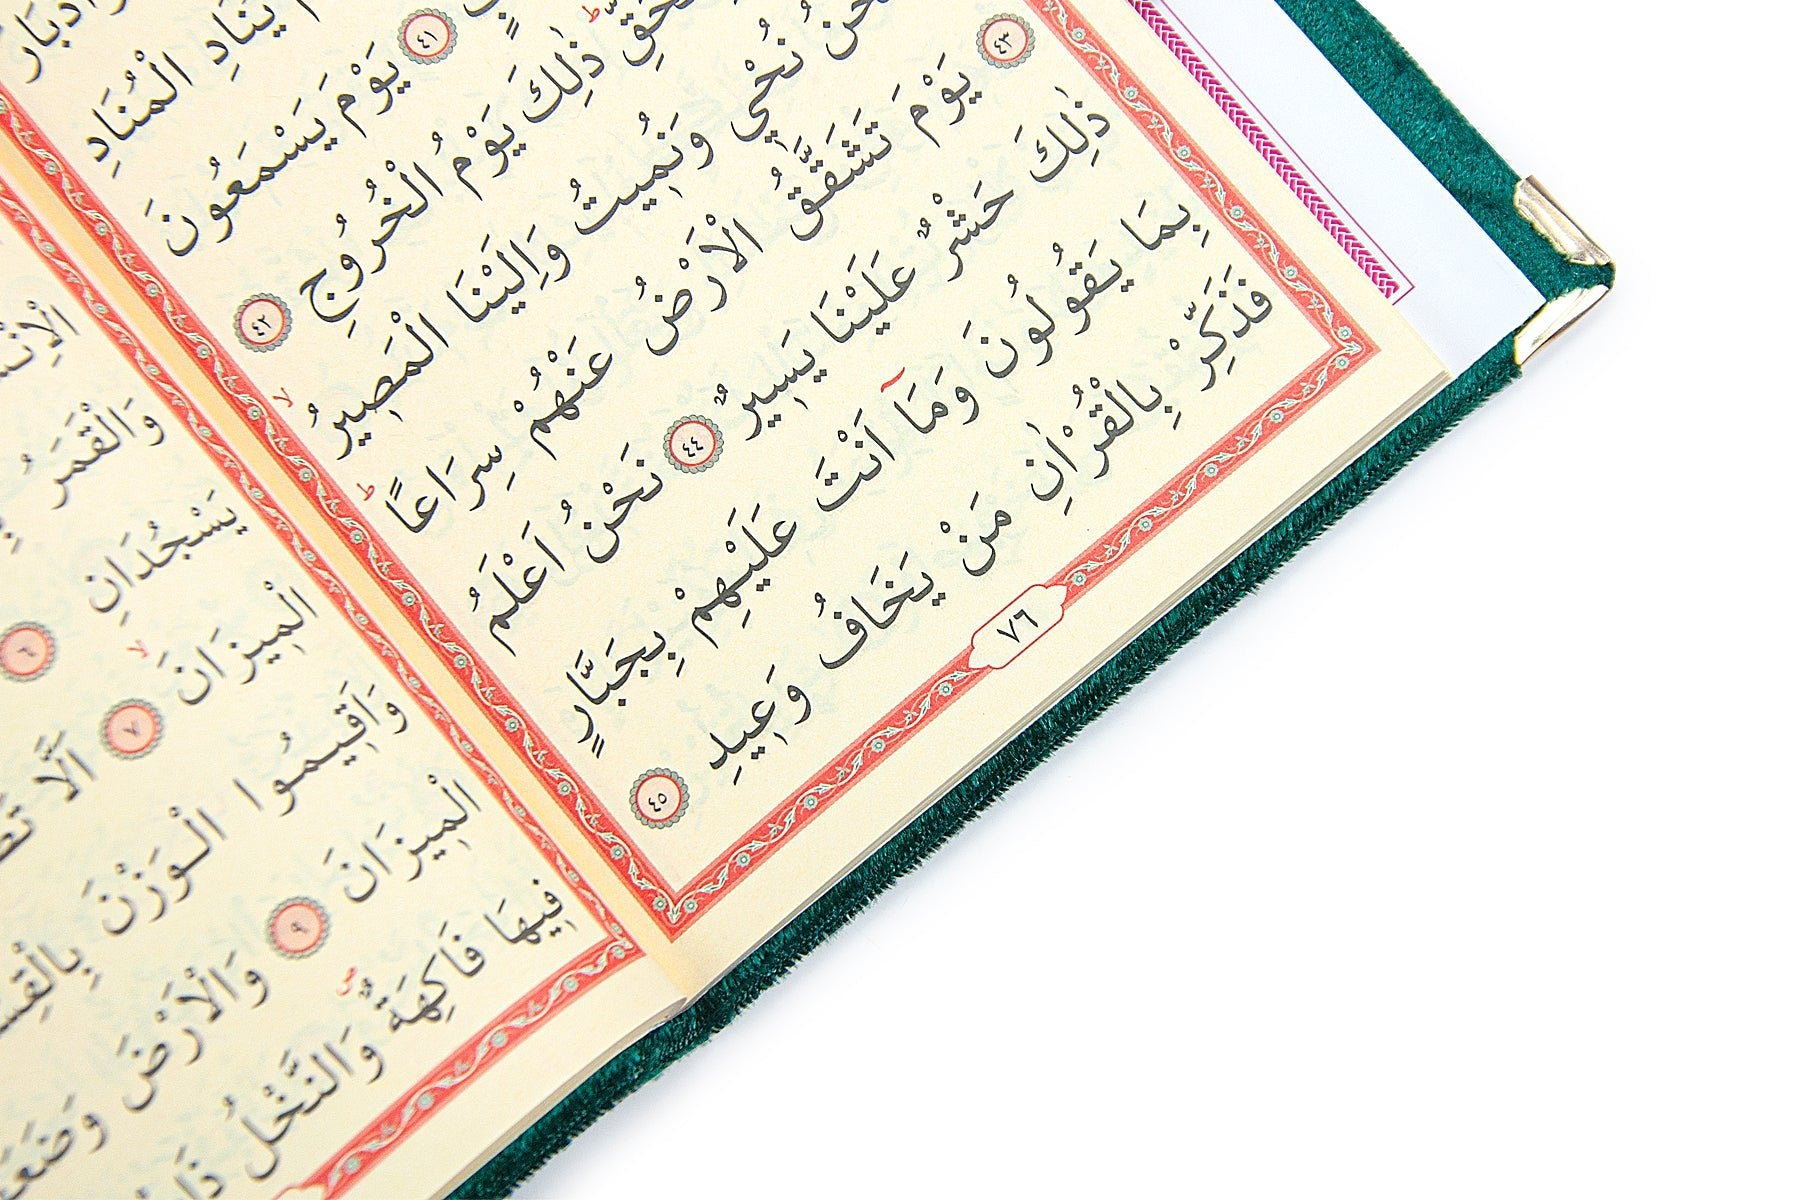 وَاَدْبَارَ
يُنَادِ الْمُنَادِ
٤١ يَوْمَ يَسْمَعُونَ
ذٰلِكَ يَوْمُ الْخُرُوجِ ٤٢
نُحْيٖ وَنُمٖيتُ وَاِلَيْنَا الْمَصٖيرُ
٤٣ يَوْمَ تَشَقَّقُ الْاَرْضُ عَنْهُمْ سِرَاعًا
ذٰلِكَ حَشْرٌ عَلَيْنَا يَسٖيرٌ ٤٤ نَحْنُ اَعْلَمُ
بِمَا يَقُولُونَ وَمَٓا اَنْتَ عَلَيْهِمْ بِجَبَّارٍ
فَذَكِّرْ بِالْقُرْاٰنِ مَنْ يَخَافُ وَعٖيدِ ٤٥
٧٦
وَالْقَمَرُ
يَسْجُدَانِ ٦
الْمٖيزَانَ ٧ اَلَّا
وَاَقٖيمُوا الْوَزْنَ
الْمٖيزَانَ ٩ وَالْاَرْضَ
فٖيهَا فَاكِهَةٌ وَالنَّخْلُ